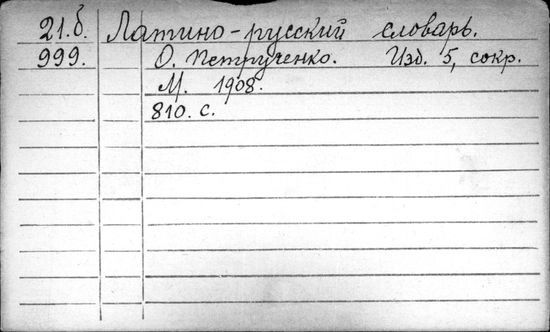 21.б. Латино-русский словарь.
999. О. Петрученко. Изд. 5, сокр.
М. 1908.
810. с.